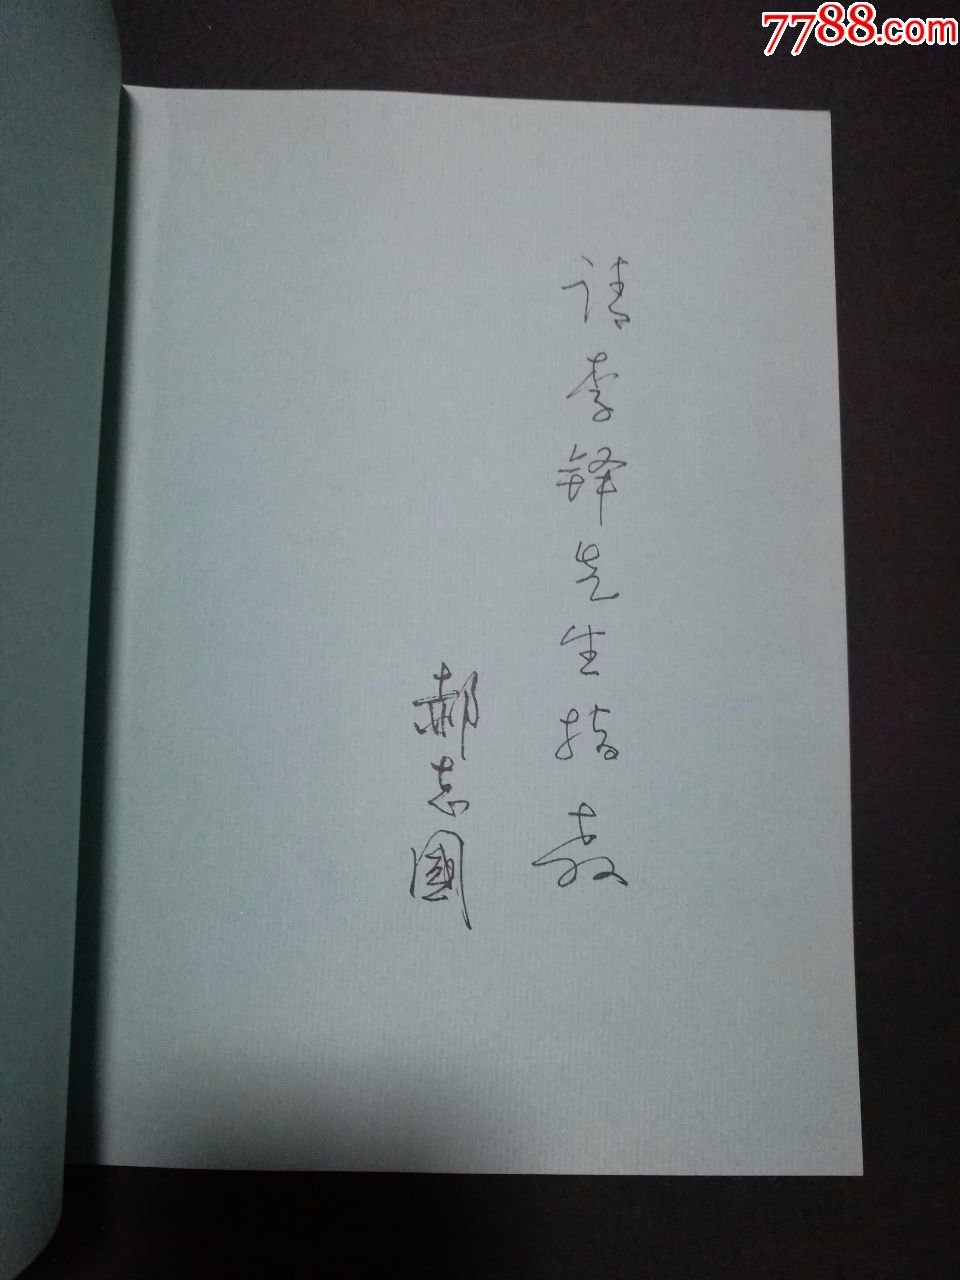 7788.com
请李铎先生指教
郝志國